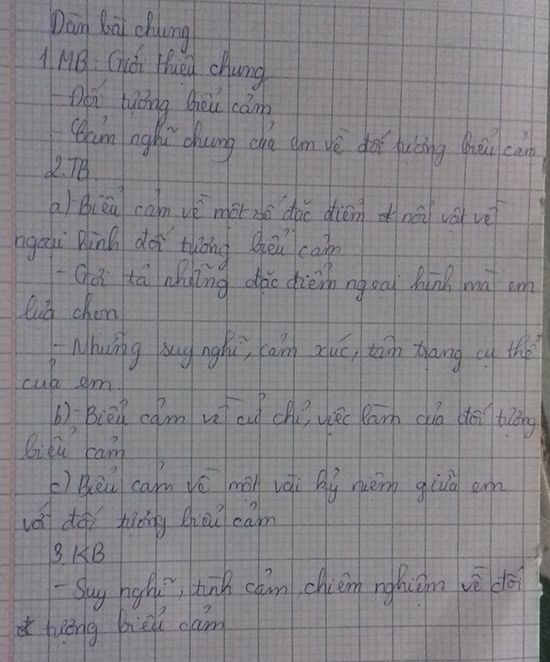 Dàn bài chung
1. MB: Giới thiệu chung
- Đối tượng biểu cảm
- Cảm nghĩ chung của em về đối tượng biểu cảm
2. TB.
a) - Biểu cảm về một số đặc điểm nổi vật về
ngoại hình đối tượng biểu cảm
- Gợi tả những đặc điểm ngoại hình mà em
lựa chọn
- Những suy nghĩ, cảm xúc, tâm trạng cụ thể
của em
b) - Biểu cảm về cử chỉ, việc làm của đối tượng
biểu cảm
c) Biểu cảm về một vài kỷ niệm giữa em
với đối tượng biểu cảm
3. KB
- Suy nghĩ, tình cảm, chiêm nghiệm về đối
tượng biểu cảm